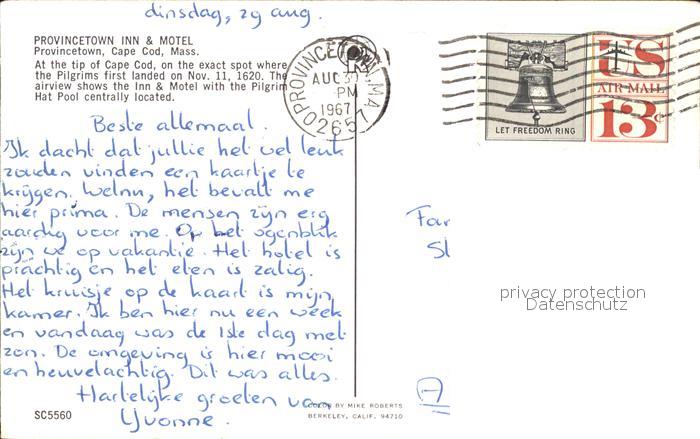 dinsdag, 29 aug.
PROVINCETOWN INN & MOTEL
Provincetown, Cape Cod, Mass.
At the tip of Cape Cod, on the exact spot where
the Pilgrims first landed on Nov. 11, 1620. The
airview shows the Inn & Motel with the Pilgrim
Hat Pool centrally located.
PROVINCETOWN, MA
AUG 30
PM
1967
02657
LET FREEDOM RING
US
AIR MAIL
13¢
Beste allemaal.
Ik dacht dat jullie het wel leuk
zouden vinden een kaartje te
krijgen. Welnu, het bevalt me
hier prima. De mensen zijn erg
aardig voor me. Op het ogenblik
zijn we op vakantie. Het hotel is
prachtig en het eten is zalig.
Het kruisje op de kaart is mijn
kamer. Ik ben hier nu een week
en vandaag was de 1ste dag met
zon. De omgeving is hier mooi
en heuvelachtig. Dit was alles.
Hartelijke groeten va
Yvonne.
Far
Sl
privacy protection
Datenschutz
A
SC5560
COLOR BY MIKE ROBERTS
BERKELEY, CALIF. 94710